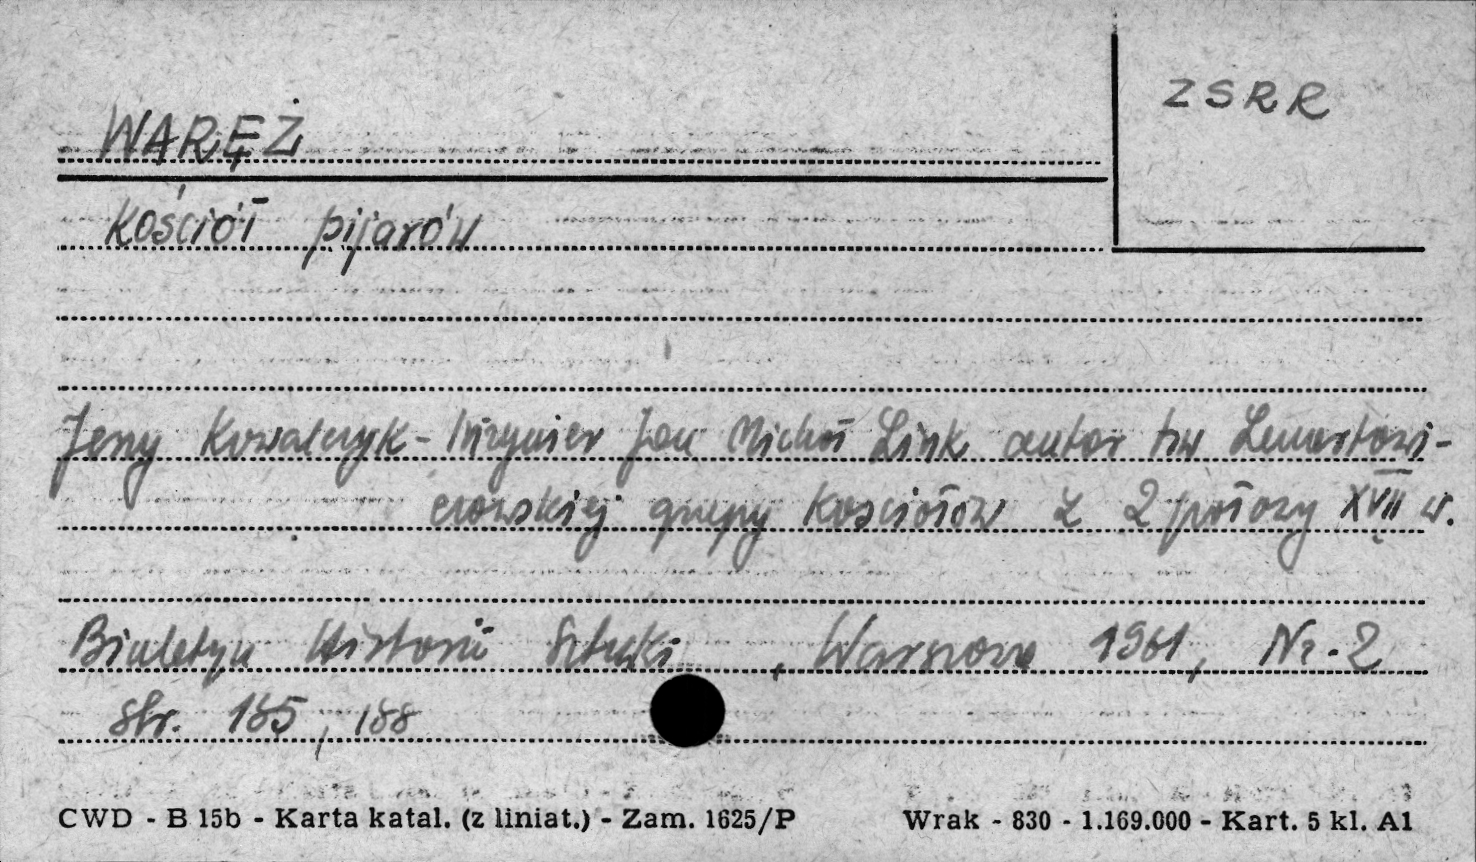 ZSRR
WARĘŻ
Kościół pijarów
Jerzy Kowalczyk - Inżynier Jan Michał Link autor tzw Lenartowi-
czowskiej grupy kościołów z 2 połowy XVII w.
Biuletyn Historii Sztuki, Warszawa 1961, Nr. 2
str. 185, 188
CWD - B 15b - Karta katal. (z liniat.) - Zam. 1625/P Wrak - 830 - 1.169.000 - Kart. 5 kl. A1